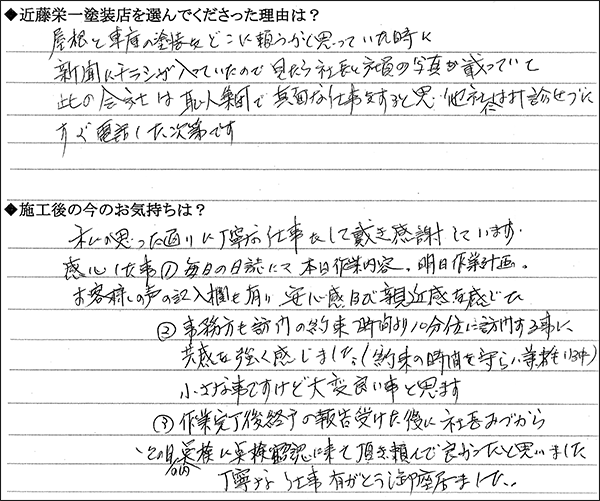 ◆近藤栄一塗装店を選んでくださった理由は？
屋根と車庫の塗装をどこに頼うかと思っていた時に
新聞にチラシが入っていたので見たら社長と社員の写真が載っていて
此の会社は職人集団で真面な仕事をすると思い他社には打診せづに
すぐ電話した次第です
◆施工後の今のお気持ちは？
私の思った通りに丁寧な仕事をして戴き感謝しています.
感心した事① 毎日の日誌にて本日作業内容。明日作業計画。
お客様の声の記入欄も有り 安心感及び親近感を感じた
② 事務方も訪問の約束時間より10分位に訪問する事に
共感を強く感じました。(約束の時間を守らい業者もいる中)
小さな事ですけど大変良い事と思ます
③ 作業完了後終了の報告受けた後に社長みづから
点検確認に来て頂き頼んで良かったと思いました
丁寧な仕事有がとう御座居ました..